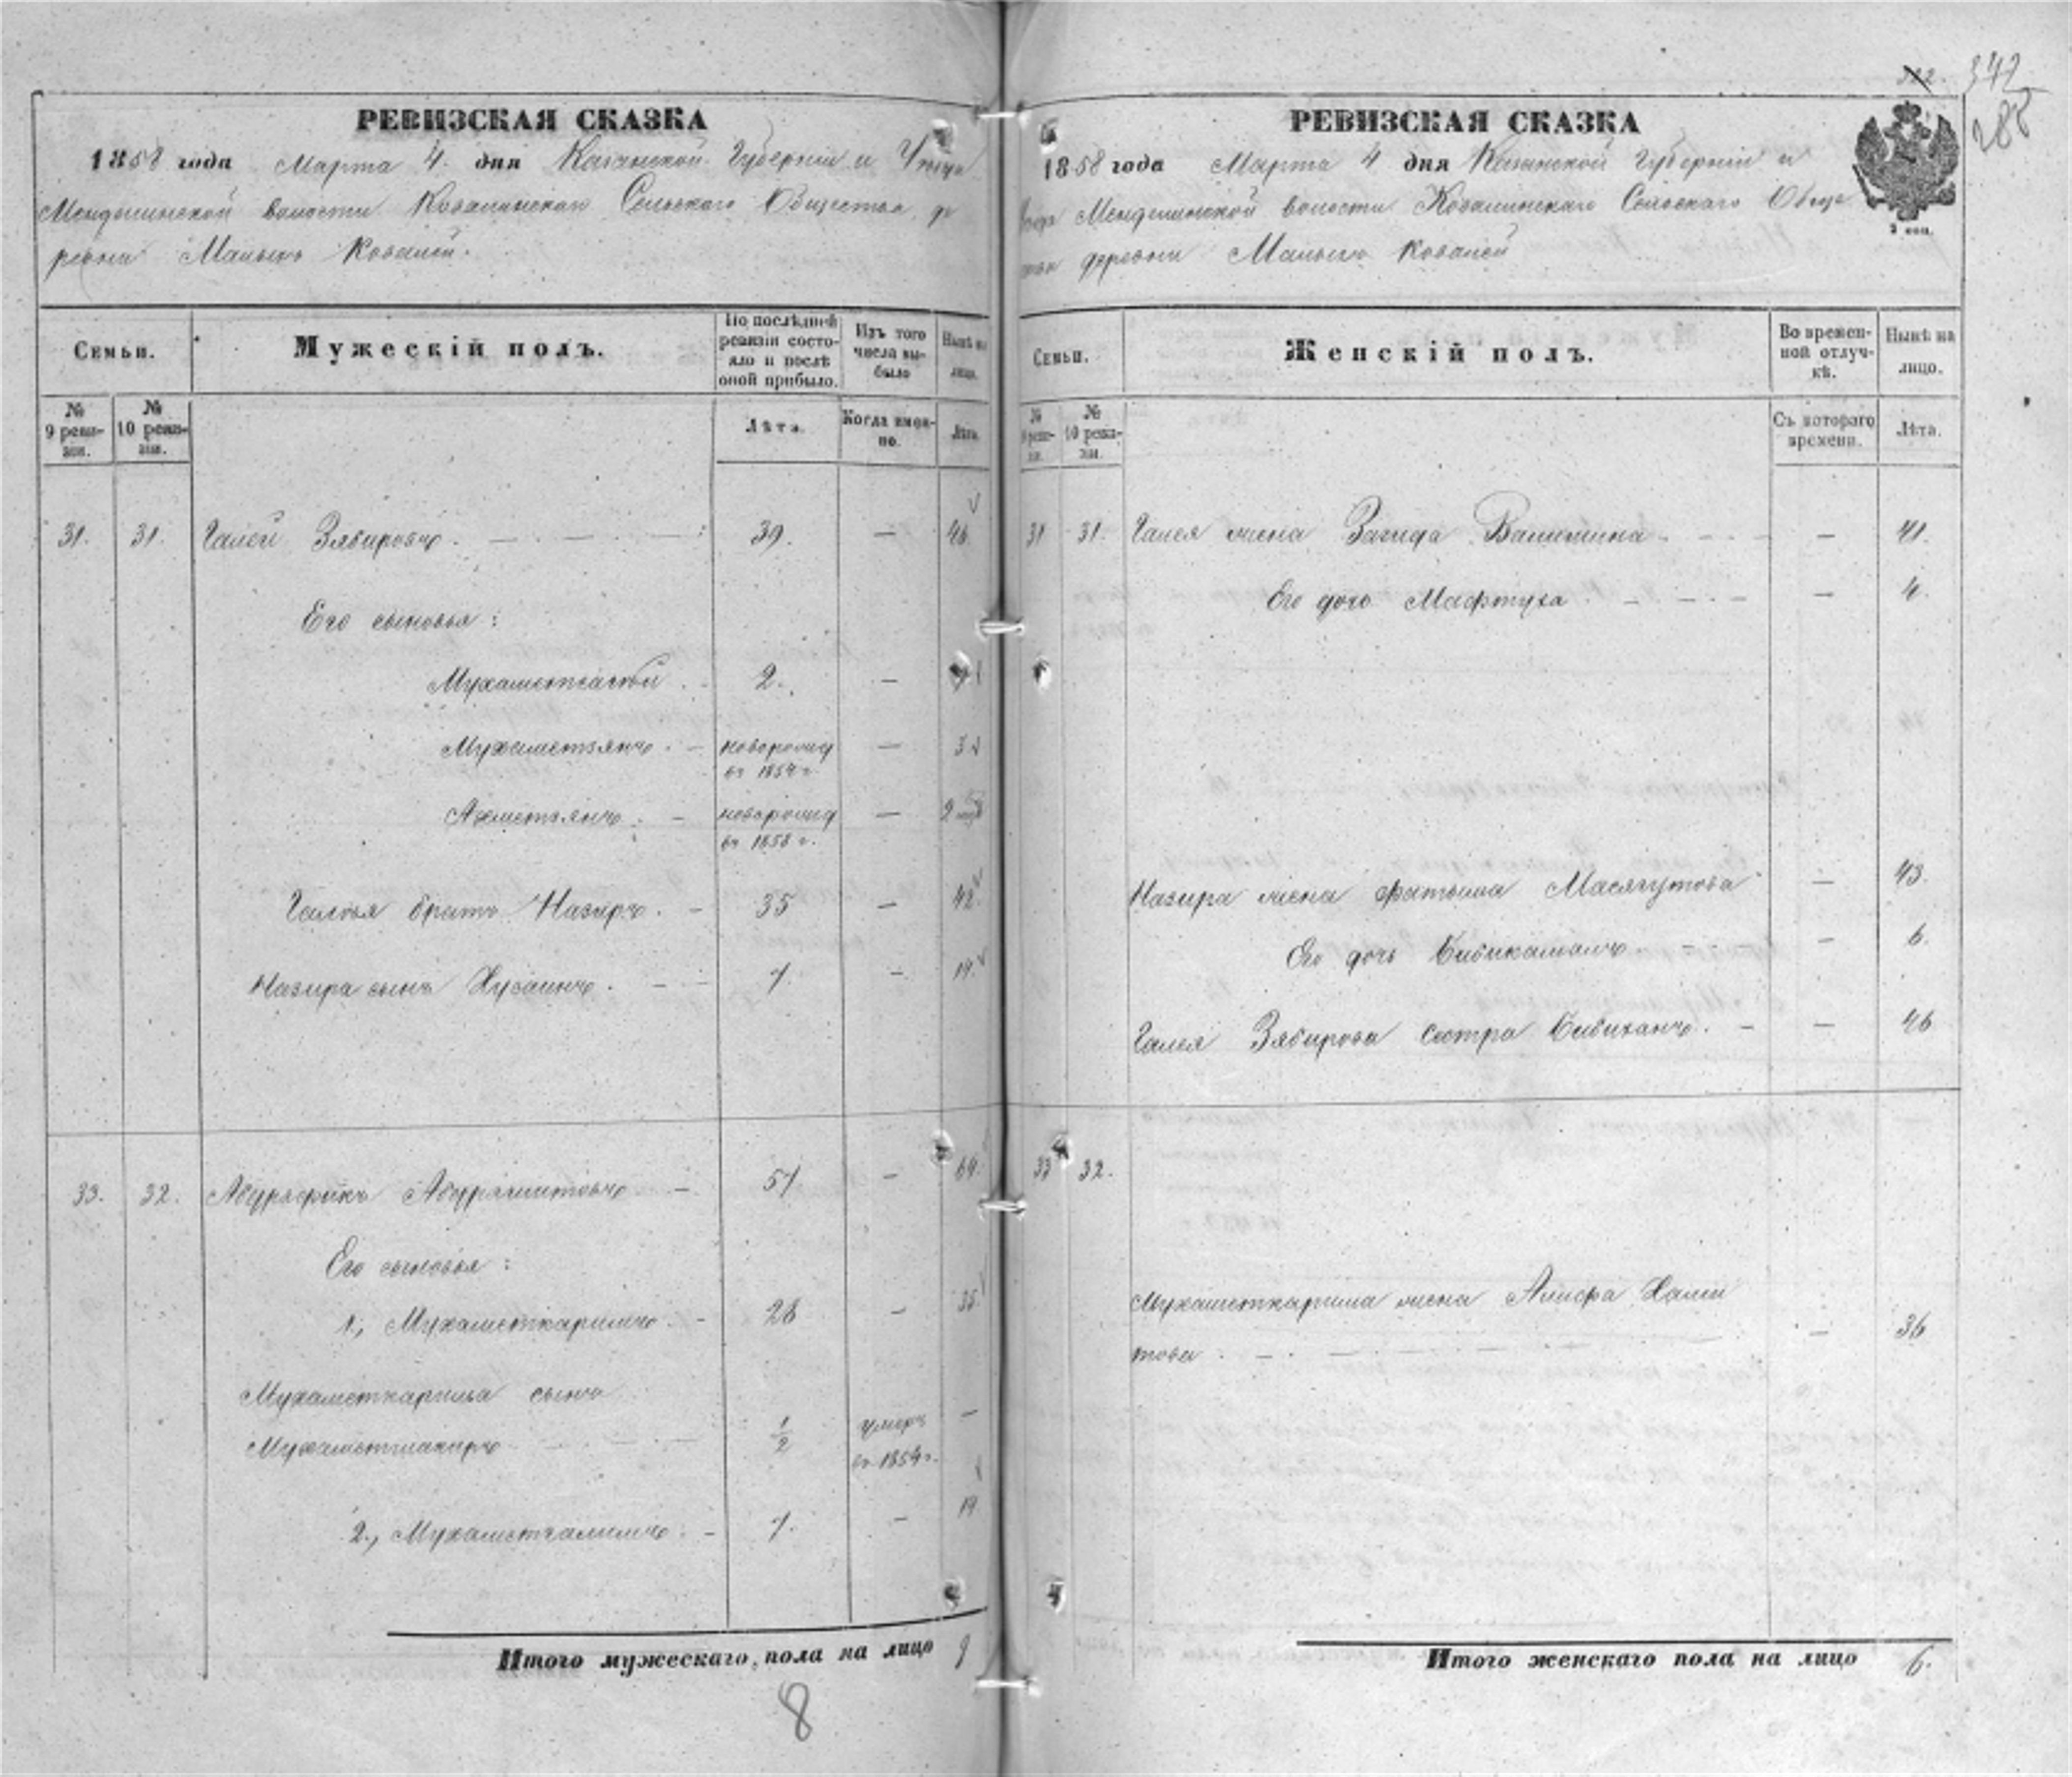 РЕВИЗСКАЯ СКАЗКА
1858 года Марта 4. дня Казанской Губернiи и Уѣзда
Мендѣлинской волости Ковалинскаго Сельскаго Общества, де
ревни Малыхъ Ковалей.
Семьи.
Мужескiй полъ.
По послѣдней
ревизiи состо-
яло и послѣ
оной прибыло.
Изъ того
числа вы-
было
Нынѣ на
лицо.
№
9 реви-
зiи.
№
10 реви-
зiи.
Лѣта.
Когда имен-
но.
Лѣта.
31. 31. Галей Зябировъ. 39. — 46.
Его сыновья:
Мухаметгалѣй 2. —
Мухаметзянъ. — новорожд — 3
въ 1854 г.
Ахметзянъ. — новорожд — 2
въ 1858 г.
Галѣя братъ Назиръ. — 35 — 42.
Назира сынъ Хусаинъ. — 7. — 14.
33. 32. Абдрафикъ Абдряшитовъ — 57 — 64.
Его сыновья:
1, Мухаметкаримъ. — 28 — 35.
Мухаметкарима сынъ
Мухаметшакиръ 1/2 умеръ —
въ 1854 г.
2, Мухаметгалимъ. — 7. — 14
Итого мужескаго, пола на лицо 9
8
322. 342
288
РЕВИЗСКАЯ СКАЗКА
1858 года Марта 4 дня Казанской Губернiи и
Уѣзда Мендѣлинской волости Ковалинскаго Сельскаго Обще
ства деревни Малыхъ Ковалей
2 коп.
Семьи.
Женскiй полъ.
Во времен-
ной отлуч-
кѣ.
Нынѣ на
лицо.
№
9 реви-
зiи.
№
10 реви-
зiи.
Съ котораго
времени.
Лѣта.
31 31. Галея жена Загида Валишина — 41.
Его дочь Мафтуха — 4.
Назира жена Фатыма Масягутова — 43.
Его дочь Бибикамалъ — 6.
Галея Зябирова сестра Бибиханъ. — — 46
33 32.
Мухаметкарима жена Алифа Халит
това. — 36
Итого женскаго пола на лицо 6.